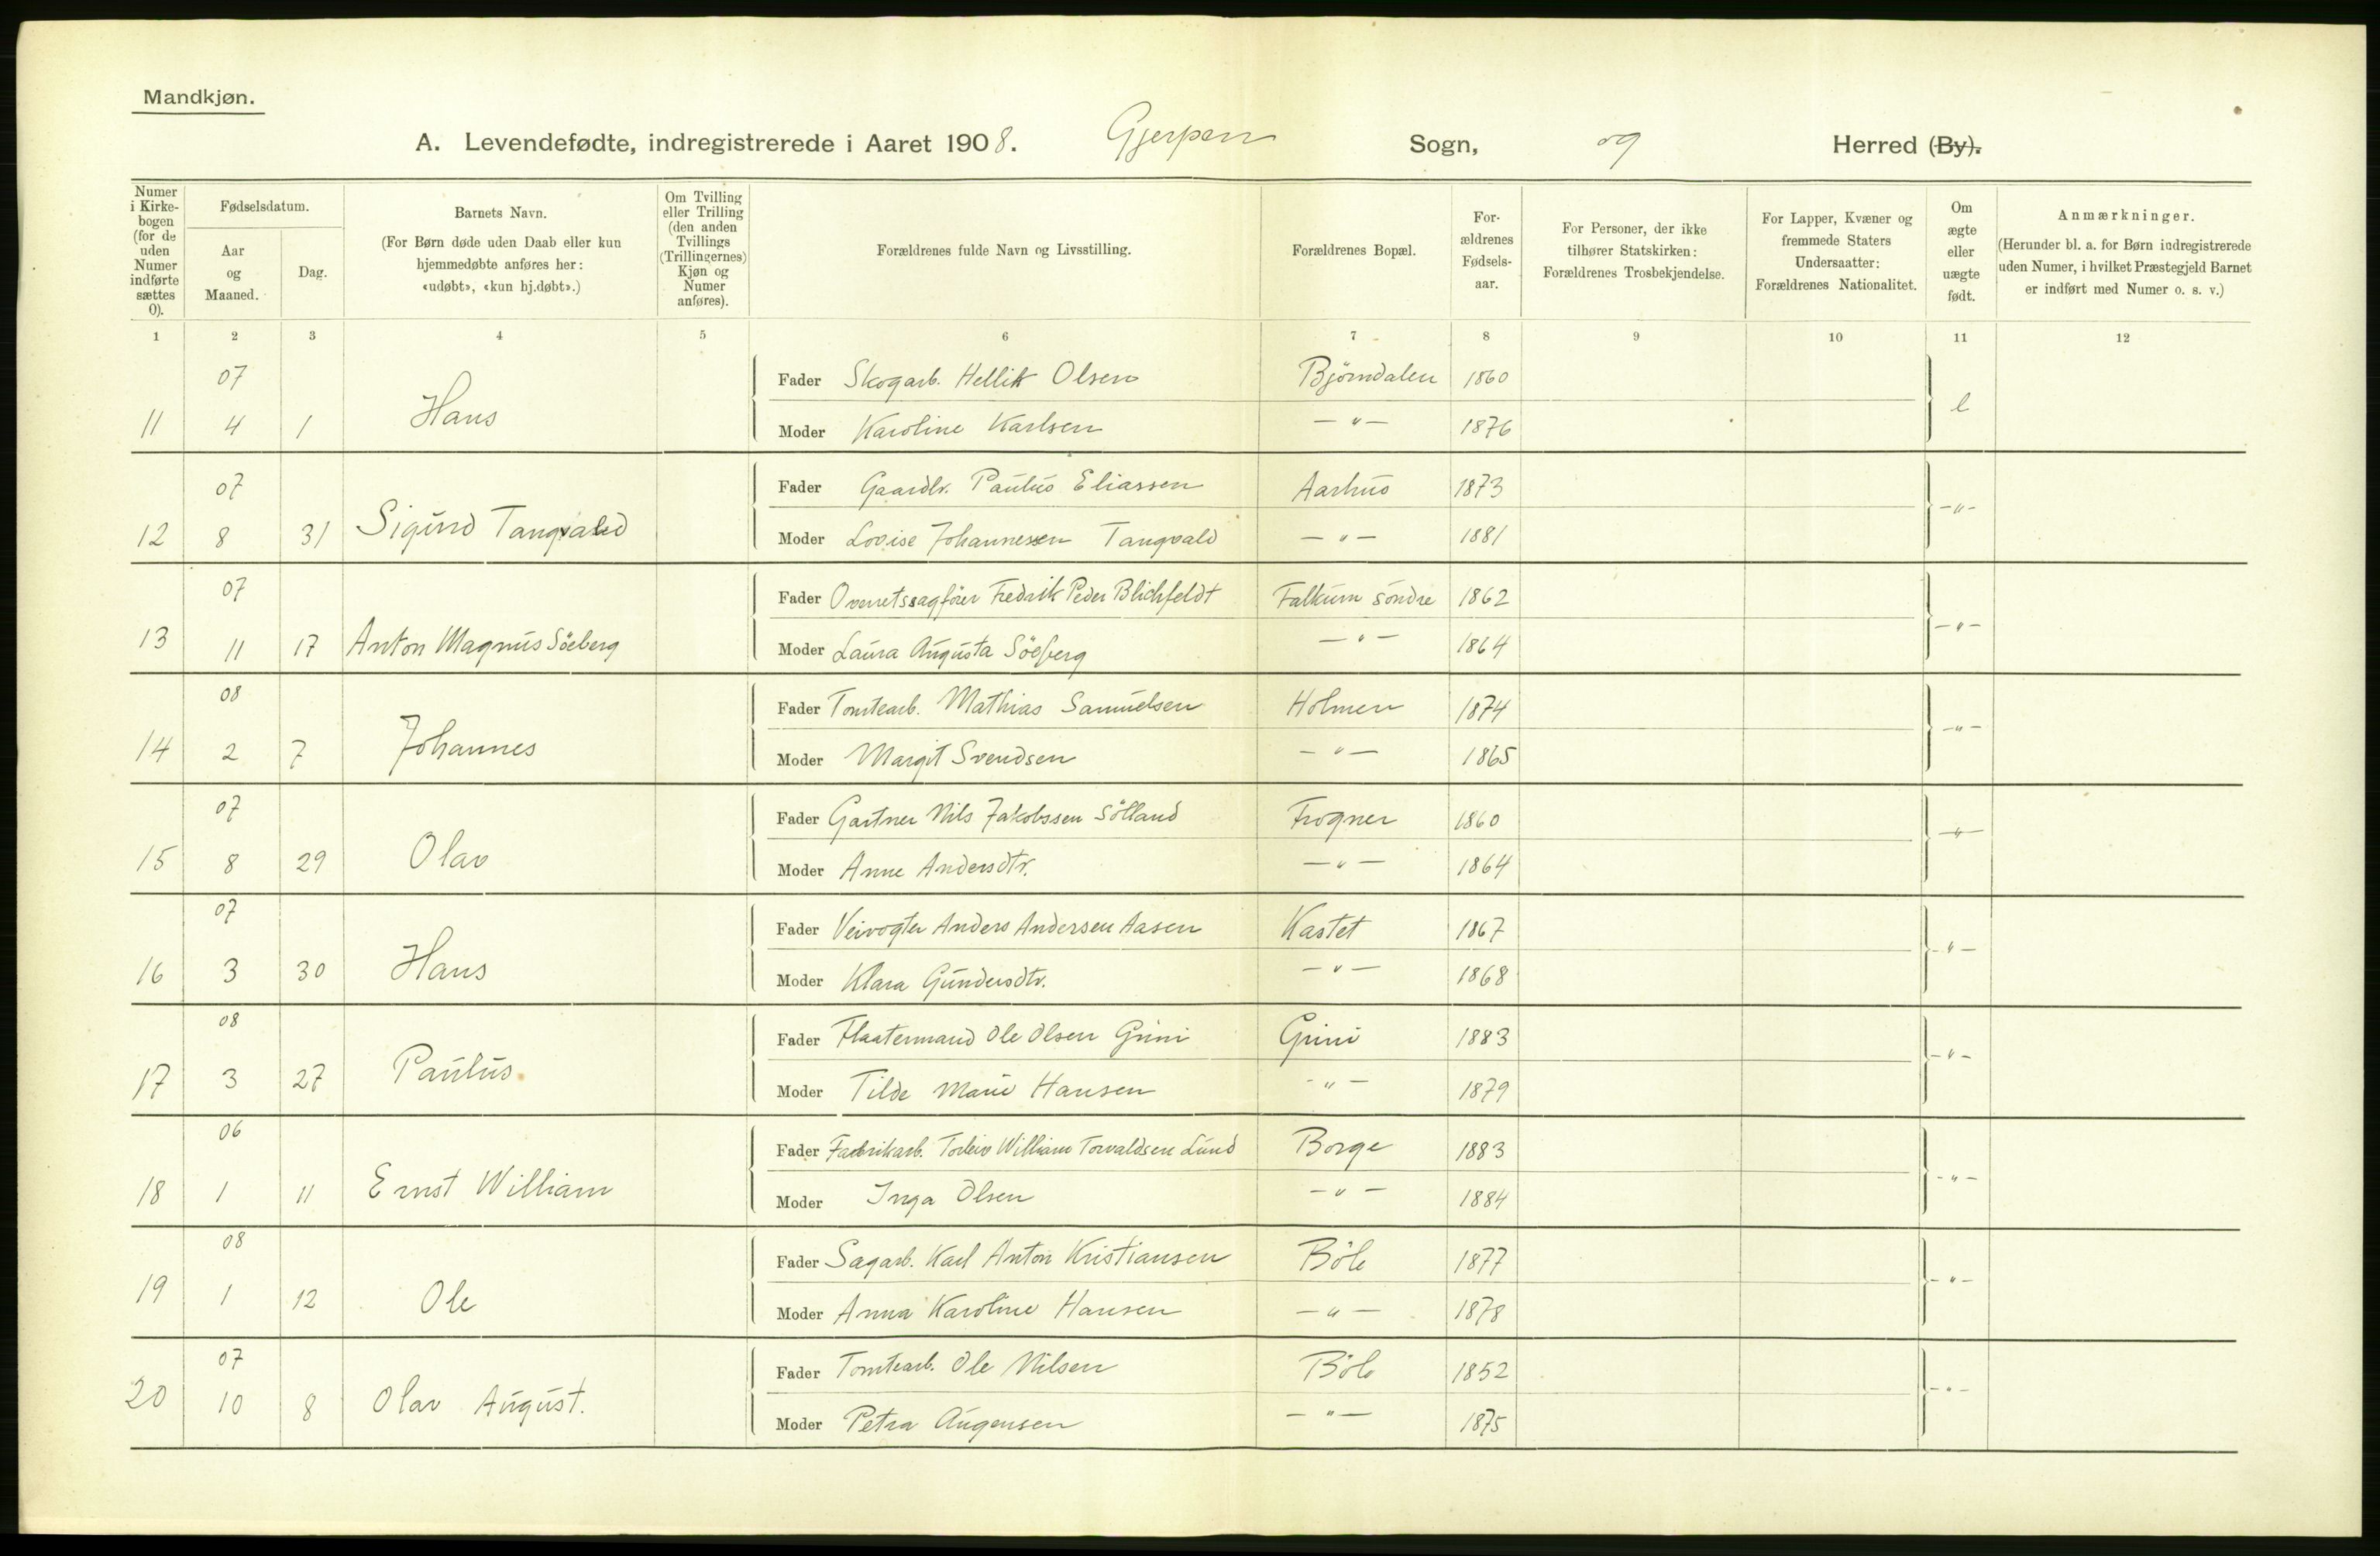 Mandkjøn.
A. Levendefødte, indregistrerede i Aaret 1908. Gjerpen Sogn, og Herred (By).
Numer i Kirkebogen (for de uden Numer indførte sættes 0).
Fødselsdatum.
Aar og Maaned.
Dag.
Barnets Navn.
(For Børn døde uden Daab eller kun hjemmedøbte anføres her: «udøbt», «kun hj.døbt».)
Om Tvilling eller Trilling (den anden Tvillings (Trillingernes) Kjøn og Numer anføres).
Forældrenes fulde Navn og Livsstilling.
Forældrenes Bopæl.
Forældrenes Fødselsaar.
For Personer, der ikke tilhører Statskirken: Forældrenes Trosbekjendelse.
For Lapper, Kvæner og fremmede Staters Undersaatter: Forældrenes Nationalitet.
Om ægte eller uægte født.
Anmærkninger.
(Herunder bl. a. for Børn indregistrerede uden Numer, i hvilket Præstegjeld Barnet er indført med Numer o. s. v.)
1 2 3 4 5 6 7 8 9 10 11 12
07 Fader Skogarb. Hellik Olsen Bjørndalen 1860
11 4 1 Hans Moder Karoline Karlsen —"— 1876 e
07 Fader Gaardbr. Paulus Eliassen Aarhus 1873
12 8 31 Sigurd Tangvald Moder Lovise Johannessen Tangvald —"— 1881 —"—
07 Fader Overretssagfører Fredrik Peder Blichfeldt Falkum søndre 1862
13 11 17 Anton Magnus Söeberg Moder Laura Augusta Söeberg —"— 1864 —"—
08 Fader Tomtearb. Mathias Samuelsen Holmen 1874
14 2 7 Johannes Moder Margit Svendsen —"— 1865 —"—
07 Fader Gartner Nils Jakobssen Sölland Frogner 1860
15 8 29 Olav Moder Anne Andersdtr. —"— 1864 —"—
07 Fader Veivogter Anders Andersen Aasen Kastet 1867
16 3 30 Hans Moder Klara Gundersdtr. —"— 1868 —"—
08 Fader Flaatermand Ole Olsen Grini Grini 1883
17 3 27 Paulus Moder Tilde Marie Hansen —"— 1879 —"—
06 Fader Fabrikarb. Torleiv William Torvaldsen Lund Borge 1883
18 1 11 Ernst William Moder Inga Olsen —"— 1884 —"—
08 Fader Sagarb. Karl Anton Kristiansen Böle 1877
19 1 12 Ole Moder Anna Karoline Hansen —"— 1878 —"—
07 Fader Tomtearb. Ole Nilsen Böle 1852
20 10 8 Olav August. Moder Petra Augensen —"— 1875 —"—